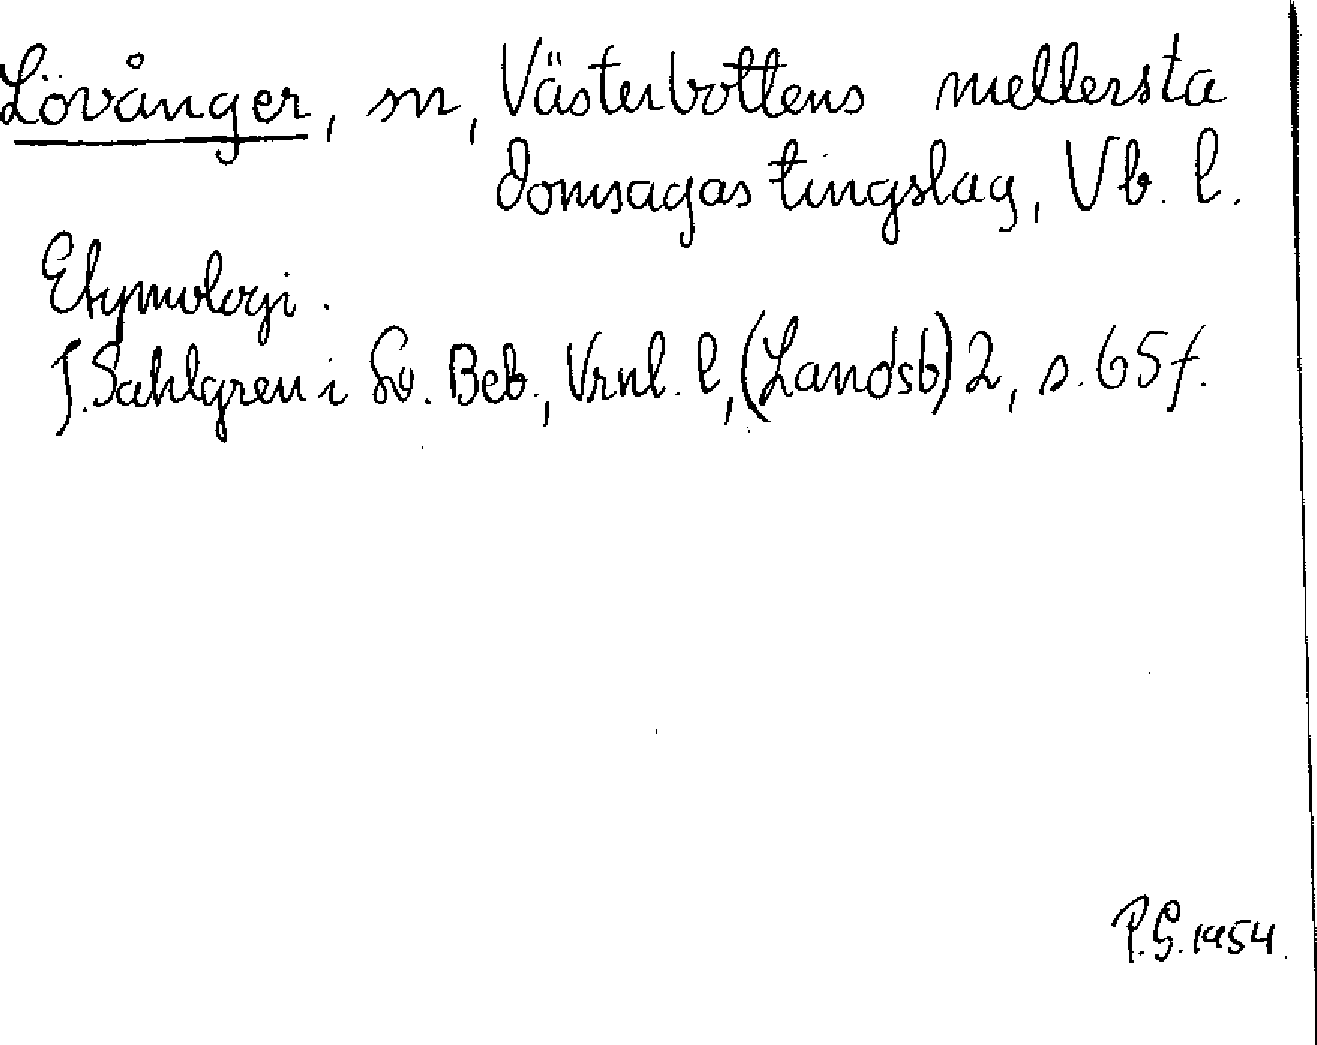 Lövånger, sn, Västerbottens mellersta
domsagas tingslag, Vb. l.
Etymologi.
J. Sahlgren i Sv. Beb., Vrml. l, (Landsb) 2, s. 65 f.
P.G. 1954.